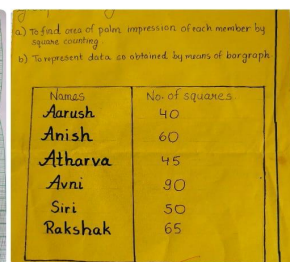 a) To find area of palm impression of each member by
square counting.
b) To represent data so obtained by means of bargraph
Names No. of squares
Aarush 40
Anish 60
Atharva 45
Avni 90
Siri 50
Rakshak 65